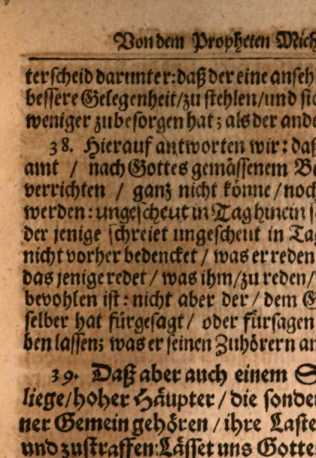 Von dem Propheten Mich
terscheid darunter: daß der eine anseh
bessere Gelegenheit/zu stehlen/und sic
weniger zubesorgen hat; als der ande
38. Hierauf antworten wir: daß
amt / nach Gottes gemässenem Be
verrichten / ganz nicht könne/noch
werden: ungescheut in Tag hinein s
der jenige schreiet ungescheut in Ta
nicht vorher bedencket / was er reden
das jenige redet / was ihm/zu reden/
bevohlen ist: nicht aber der / dem G
selber hat fürgesagt / oder fürsagen
ben lassen; was er seinen Zuhörern an
39. Daß aber auch einem S
liege/hoher Häupter / die sonder
ner Gemein gehören / ihre Laste
und zustraffen: Lässet uns Gotte